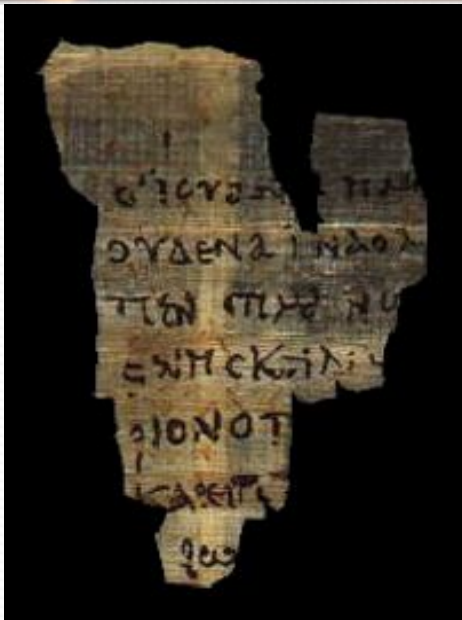 ΟΙ ΙΟΥΔΑΙ ΗΜ
ΟΥΔΕΝΑ ΙΝΑ Ο Λ
ΠΕΝ ϹΗΜΑΙΝΩ
ΘΝΗϹΚΕΙΝ
ΡΙΟΝ Ο Π
ΚΑΙ ΕΙΠ
ΑΙΩ